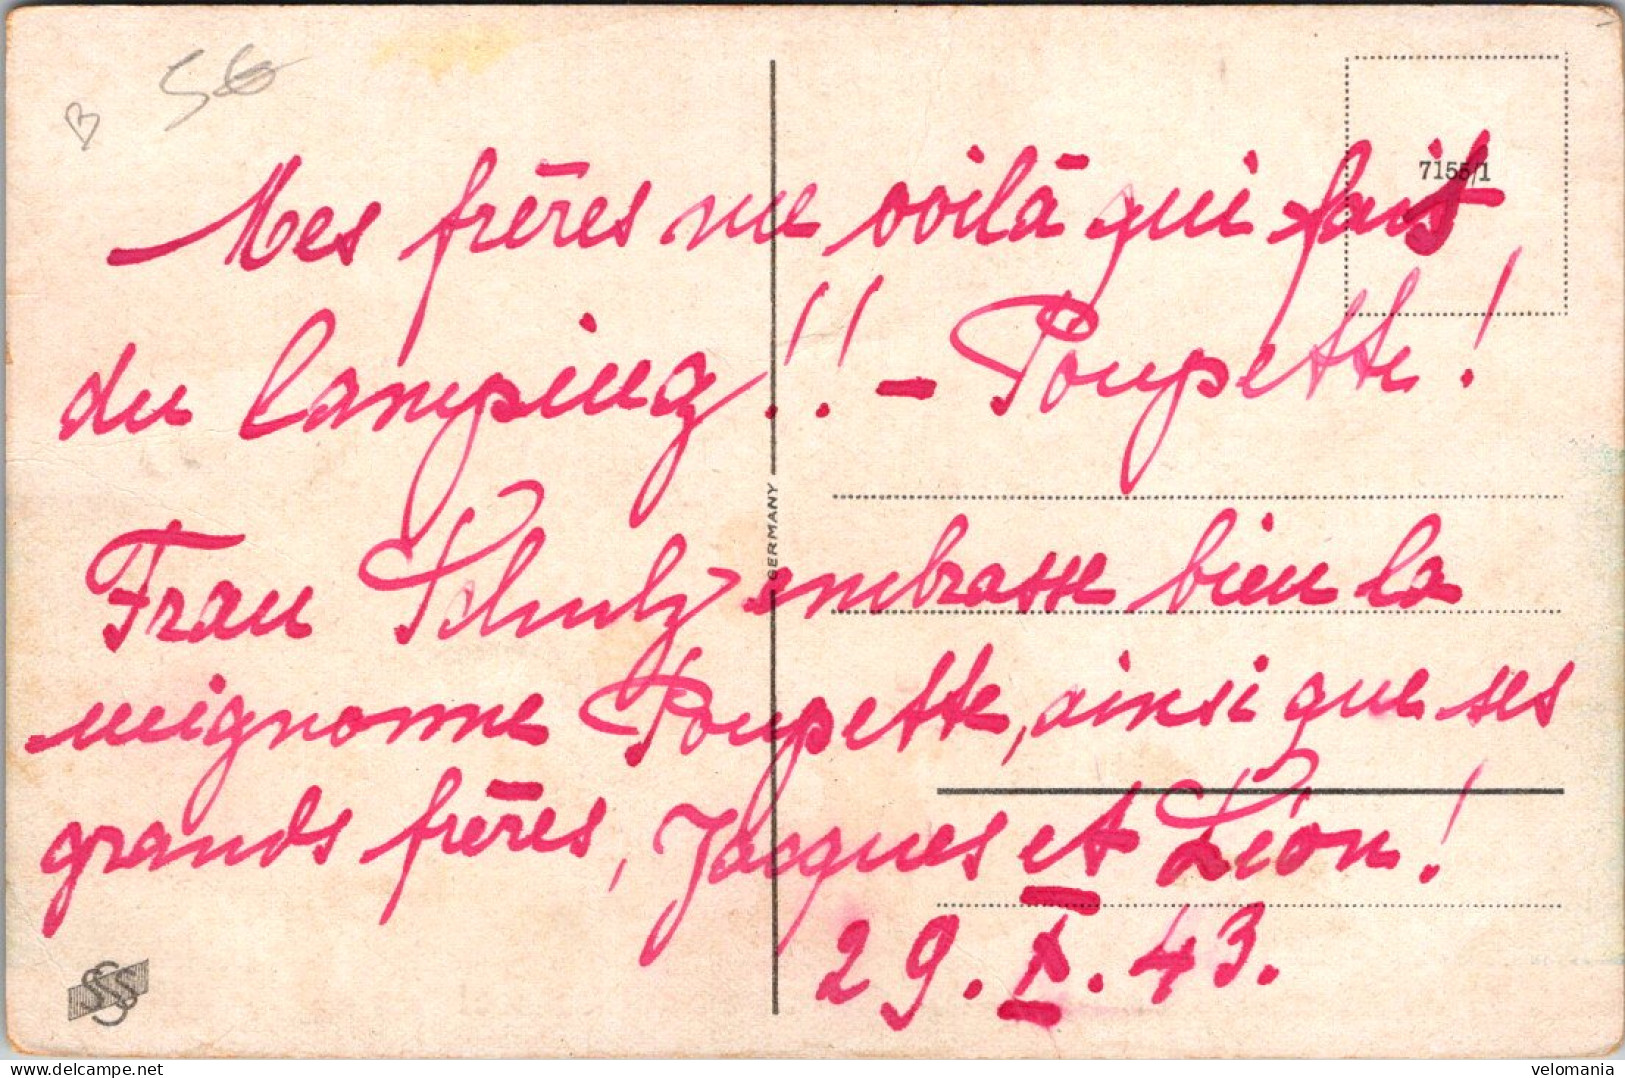 56
Mes frères me voilà qui fait
7155/1
du Camping!! - Poupette!
GERMANY
Frau Schulz embrasse bien la
mignonne Poupette, ainsi que ses
grands frères, Jacques et Léon!
29.X.43.
SSS
delcampe.net
velomania